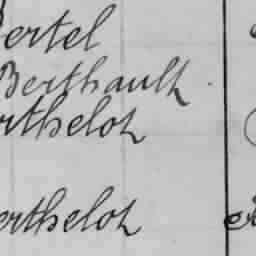 ertel
Berthault
rthelot
erthelot